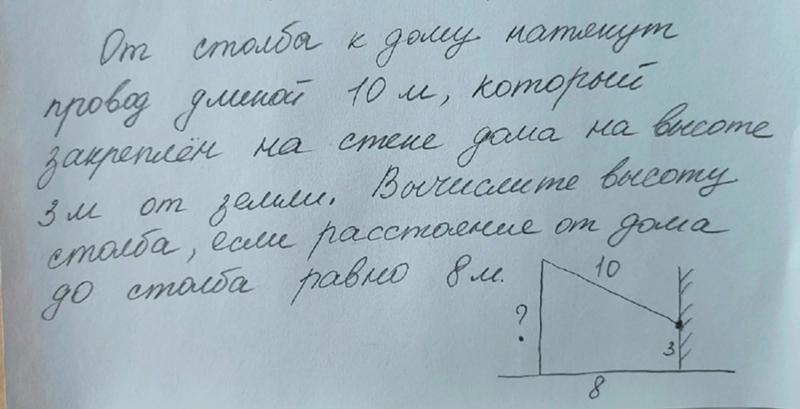 От столба к дому натянут
провод длиной 10 м, который
закреплён на стене дома на высоте
3 м от земли. Вычислите высоту
столба, если расстояние от дома
до столба равно 8 м.
10
?
3
8